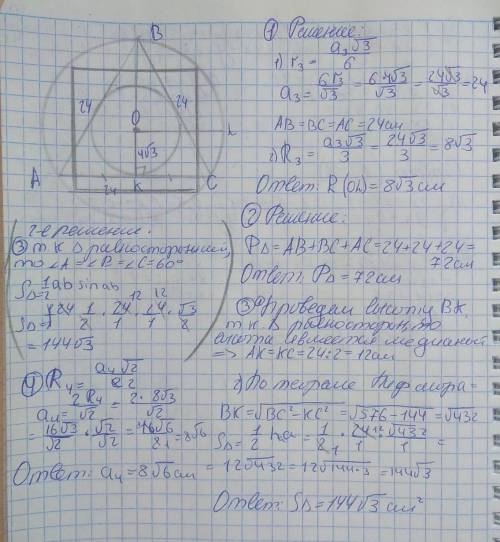 B
24
24
O
4√3
L
A
24
K
C
① Решение:
1) r₃ = a₃√3/6
a₃ = 6r₃/√3 = 6·4√3/√3 = 24√3/√3 = 24
AB=BC=AC=24см
2) R₃ = a₃√3/3 = 24√3/3 = 8√3
Ответ: R (OL)=8√3 см
② Решение:
P∆=AB+BC+AC=24+24+24=
72см
Ответ: P∆=72см
③ 1) Проведем высоту BK,
т.к ∆ равносторон., то
высота является медианой
=> AK=KC=24:2=12см
2) По теореме Пифагора=
BK=√BC²-KC² = √576-144 = √432
S∆= 1/2 ha = 1/2 · 24/1 · √432/1 =
= 12√432 = 12√144·3 = 144√3
Ответ: S∆=144√3 см²
2-е решение.
③ т.к ∆ равносторонний,
то ∠A=∠B=∠C=60°
S∆= 1/2 ab sin ab
S∆= 1/2 · 24/1 · 24/1 · √3/2
= 144√3
④ R₄ = a₄√2/2
a₄ = 2R₄/√2 = 2·8√3/√2
= 16√3/√2 · √2/√2 = 16√6/2 = 8√6
Ответ: a₄=8√6 см